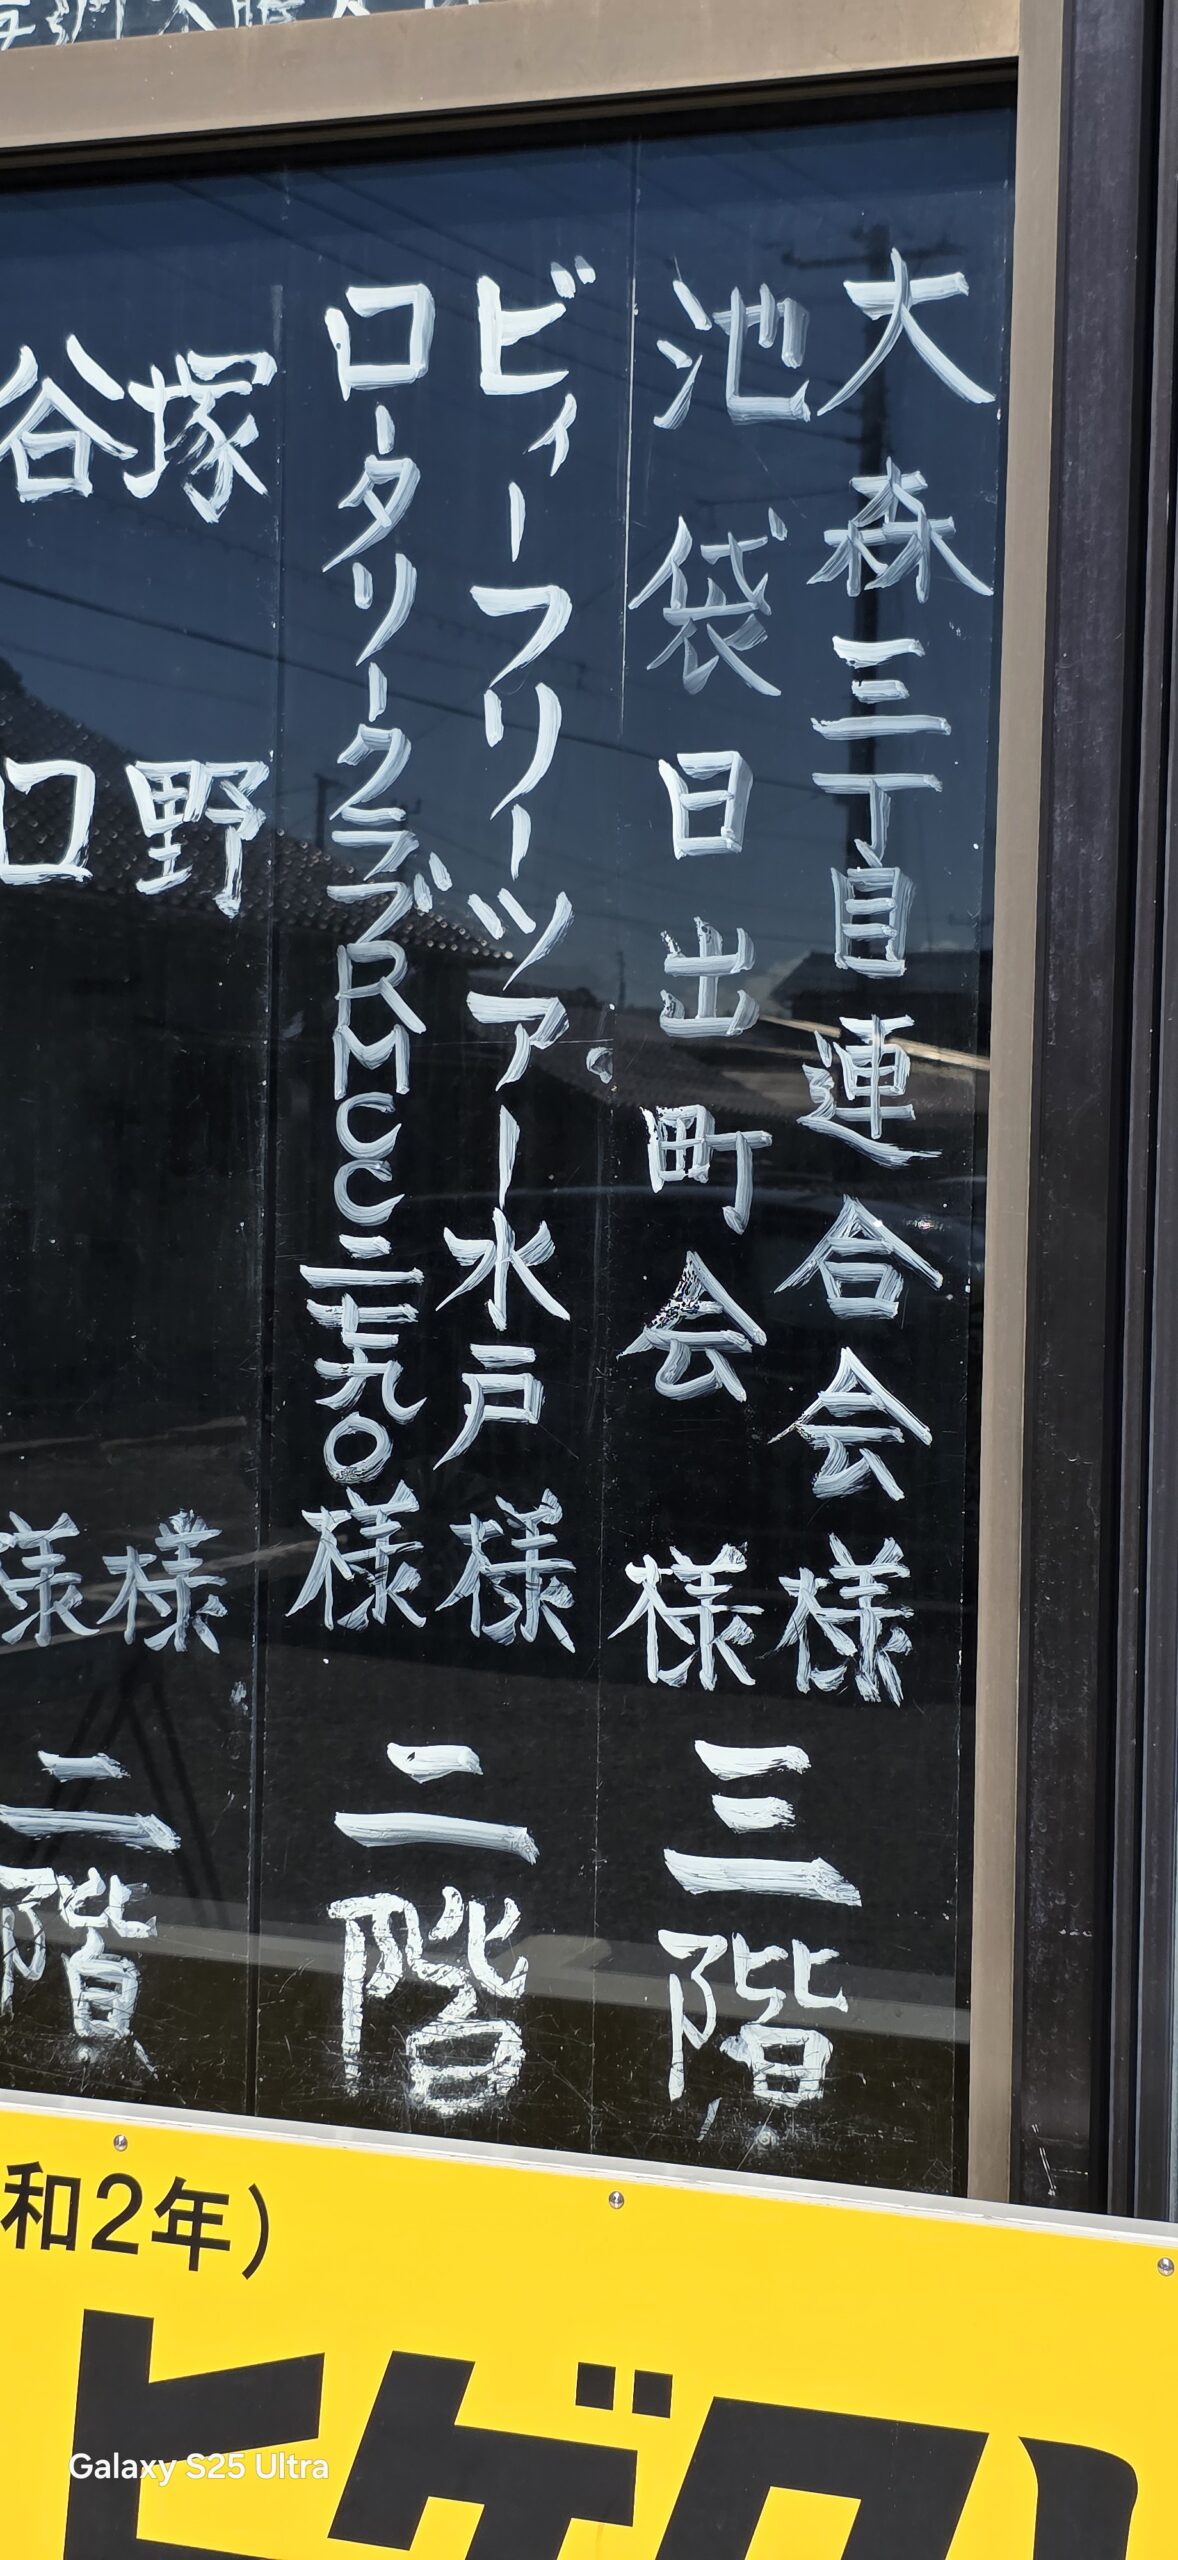 大森三丁目連合会様
池袋日出町会様
三階
ビィーフリーツアー水戸様
ロータリークラブRMCC二七九〇様
二階
塚野様
谷口様
二階
和2年)
ヒゲタ
Galaxy S25 Ultra